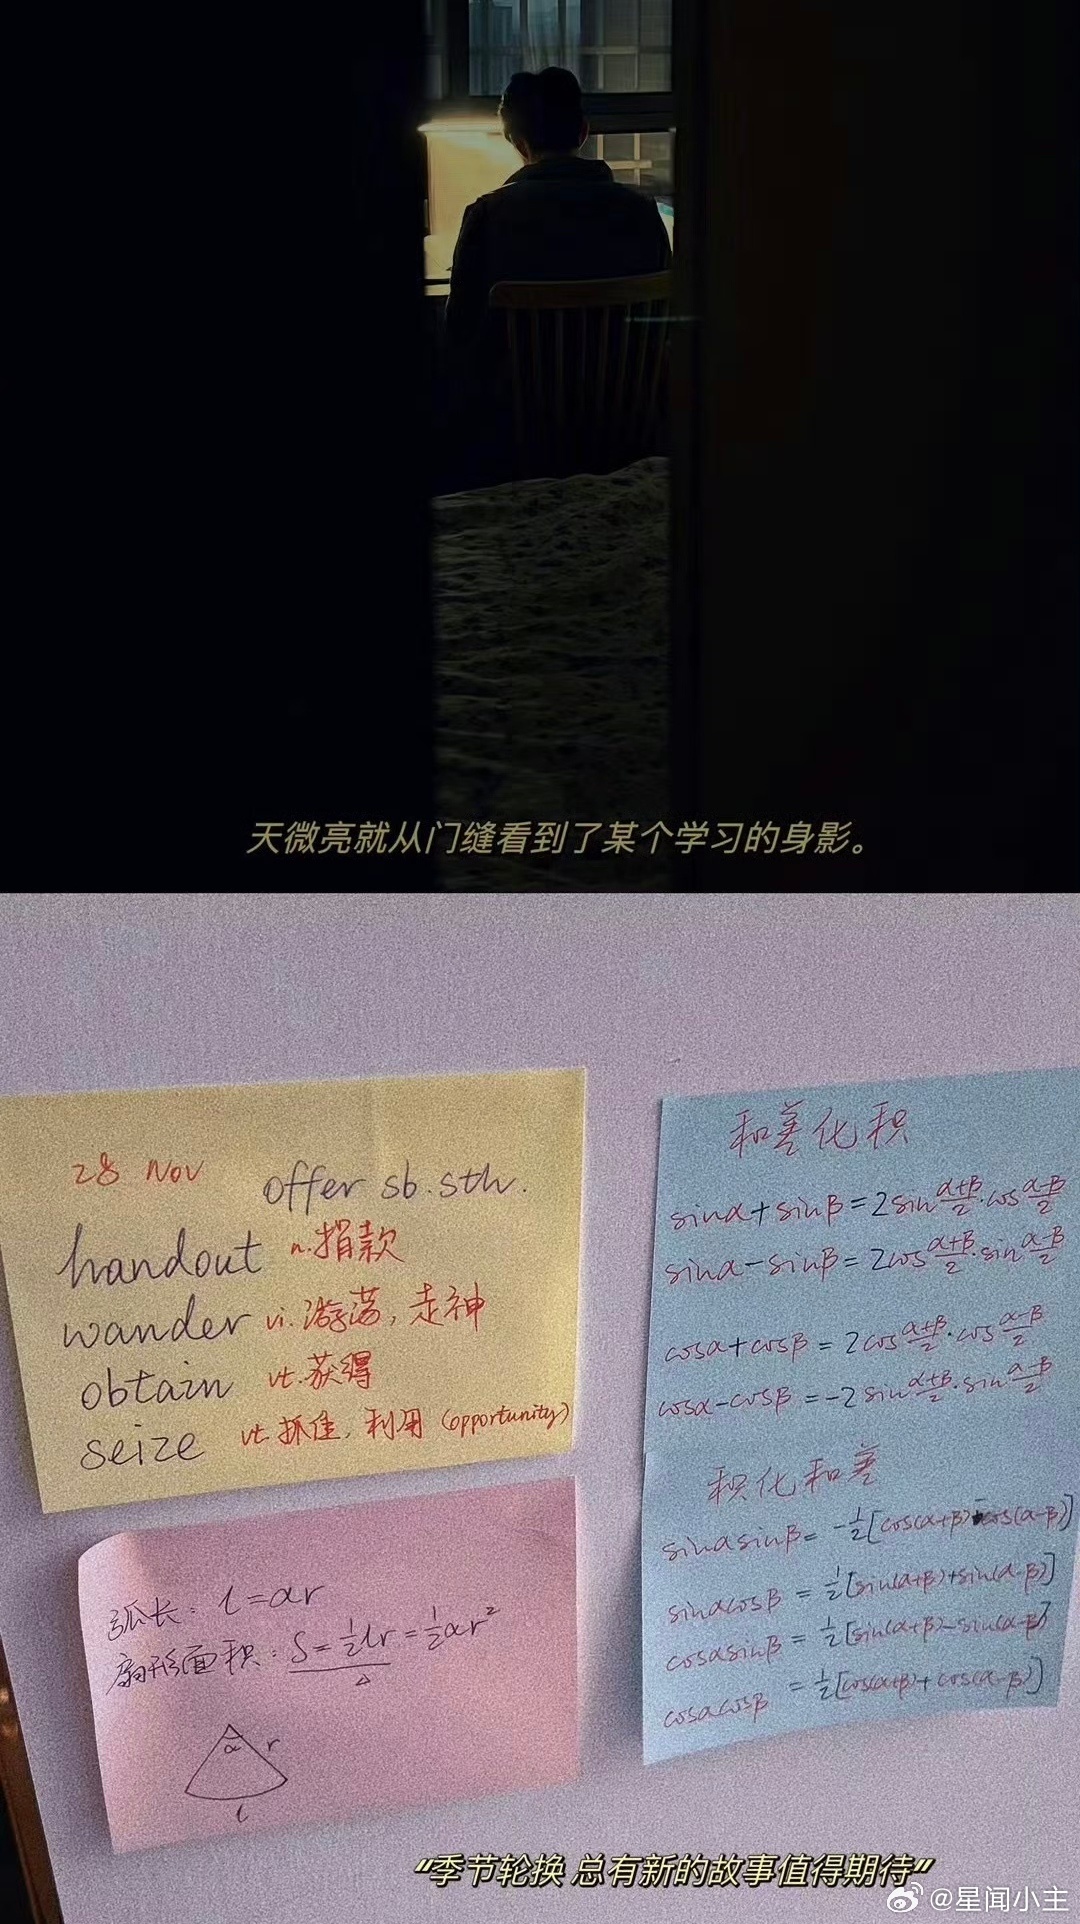 天微亮就从门缝看到了某个学习的身影。
28 Nov
offer sb. sth.
handout n.捐款
wander vi.游荡,走神
obtain vt.获得
seize vt.抓住,利用(opportunity)
弧长: l=αr
扇形面积: S=½lr=½αr²
α r
l
和差化积
sinα+sinβ=2sin(α+β)/2·cos(α-β)/2
sinα-sinβ=2cos(α+β)/2·sin(α-β)/2
cosα+cosβ=2cos(α+β)/2·cos(α-β)/2
cosα-cosβ=-2sin(α+β)/2·sin(α-β)/2
积化和差
sinαsinβ=-½[cos(α+β)-cos(α-β)]
sinαcosβ=½[sin(α+β)+sin(α-β)]
cosαsinβ=½[sin(α+β)-sin(α-β)]
cosαcosβ=½[cos(α+β)+cos(α-β)]
“季节轮换 总有新的故事值得期待”
@星闻小主